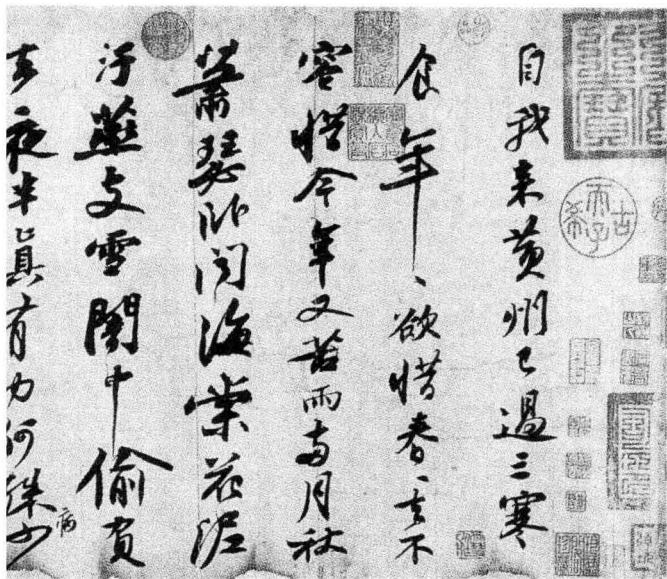 自我来黄州已過三寒
食年〻欲惜春〻去不
容惜今年又苦雨两月秋
蕭瑟卧聞海棠花泥
汙燕支雪闇中偷負
去夜半真有力何殊少
病
古希天子